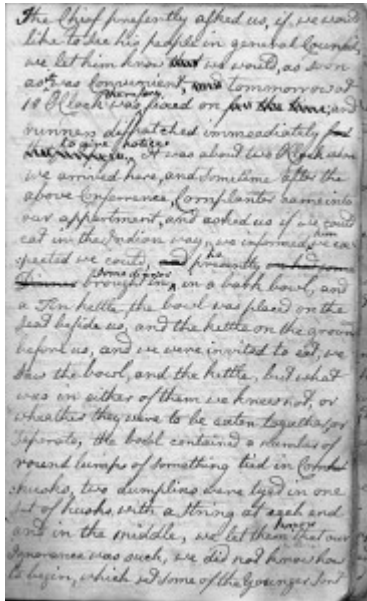 The Chief presently asked us, if we would
like to see his people in general Council,
we let him know we would, as soon
as it was convenient, tommorrow at
10 OClock was therefore fixed on; and
runners dispatched immeadiately
to give notice, It was about two OClock when
we arrived here, and sometime after the
above Conference, Cornplanter came into
our appartment, and asked us if we could
eat in the Indian way, we informed him, we ex-
pected we could, presently
some dinner brought in, in a bark bowl, and
a Tin kettle, the bowl was placed on the
seat beside us, and the kettle on the ground
before us, and we were invited to eat, we
saw the bowl, and the kettle, but what
was in either of them we knew not, or
wheather they were to be eaten togather, or
seperate, the bowl contained a number of
round lumps of something tied in Corn
husks, two dumplins were tyed in one
set of husks, with a string at each end
and in the middle, we let them know that our
Ignorance was such, we did not know how
to begin, which set some of the Younger sort